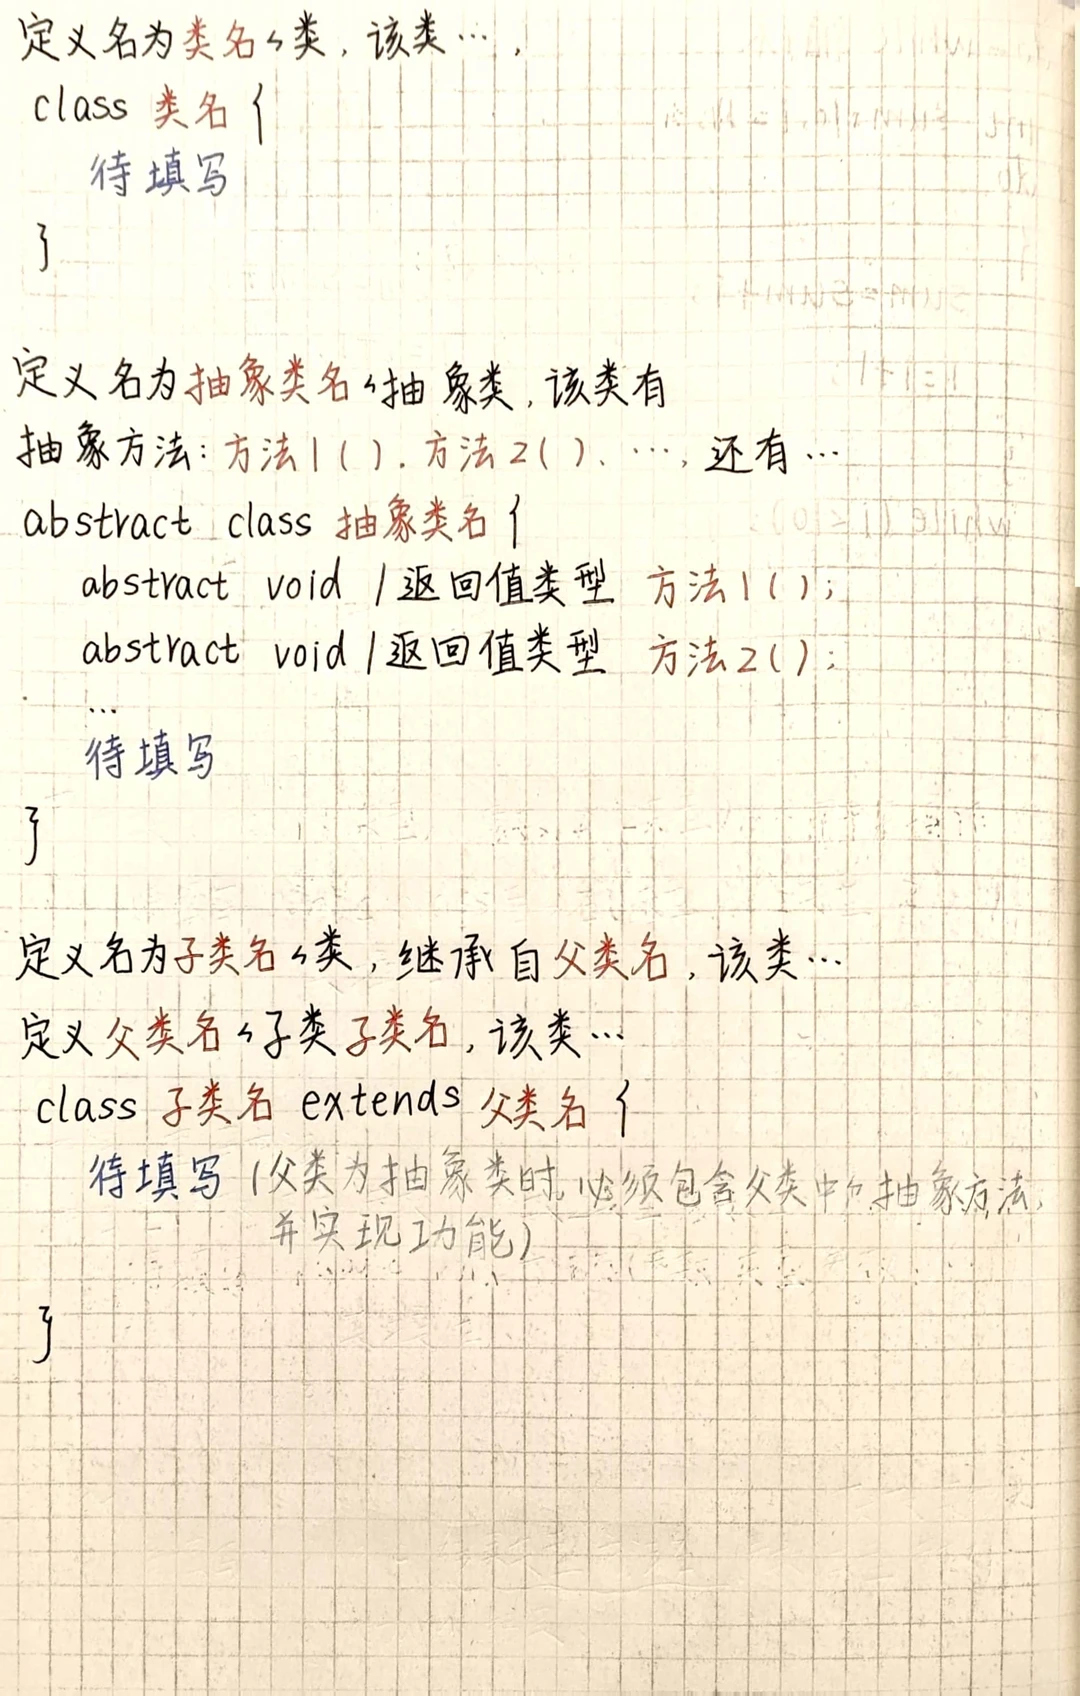 定义名为类名的类，该类…，
class 类名 {
待填写
}
定义名为抽象类名的抽象类，该类有
抽象方法：方法1()、方法2()、…，还有…
abstract class 抽象类名 {
abstract void /返回值类型 方法1();
abstract void /返回值类型 方法2();
…
待填写
}
定义名为子类名的类，继承自父类名，该类…
定义父类名的子类子类名，该类…
class 子类名 extends 父类名 {
待填写 (父类为抽象类时，必须包含父类中的抽象方法，
并实现功能)
}